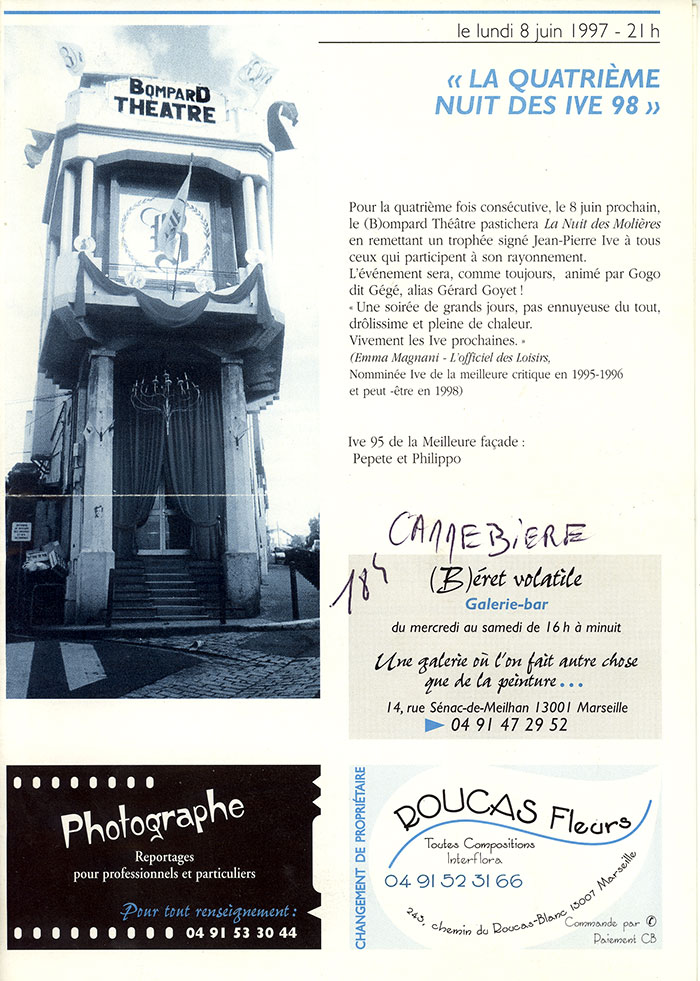 le lundi 8 juin 1997 - 21 h
« LA QUATRIÈME
NUIT DES IVE 98 »
BOMPARD
THÉATRE
B
Pour la quatrième fois consécutive, le 8 juin prochain,
le (B)ompard Théâtre pastichera La Nuit des Molières
en remettant un trophée signé Jean-Pierre Ive à tous
ceux qui participent à son rayonnement.
L'événement sera, comme toujours, animé par Gogo
dit Gégé, alias Gérard Goyet !
« Une soirée de grands jours, pas ennuyeuse du tout,
drôlissime et pleine de chaleur.
Vivement les Ive prochaines. »
(Emma Magnani - L'officiel des Loisirs,
Nomminée Ive de la meilleure critique en 1995-1996
et peut -être en 1998)
Ive 95 de la Meilleure façade :
Pepete et Philippo
CANNEBIERE
18h
(B)éret volatile
Galerie-bar
du mercredi au samedi de 16 h à minuit
Une galerie où l'on fait autre chose
que de la peinture...
14, rue Sénac-de-Meilhan 13001 Marseille
04 91 47 29 52
Photographe
Reportages
pour professionnels et particuliers
Pour tout renseignement :
04 91 53 30 44
CHANGEMENT DE PROPRIÉTAIRE
ROUCAS Fleurs
Toutes Compositions
Interflora
04 91 52 31 66
243, chemin du Roucas-Blanc 13007 Marseille
Commande par ✆
Paiement CB